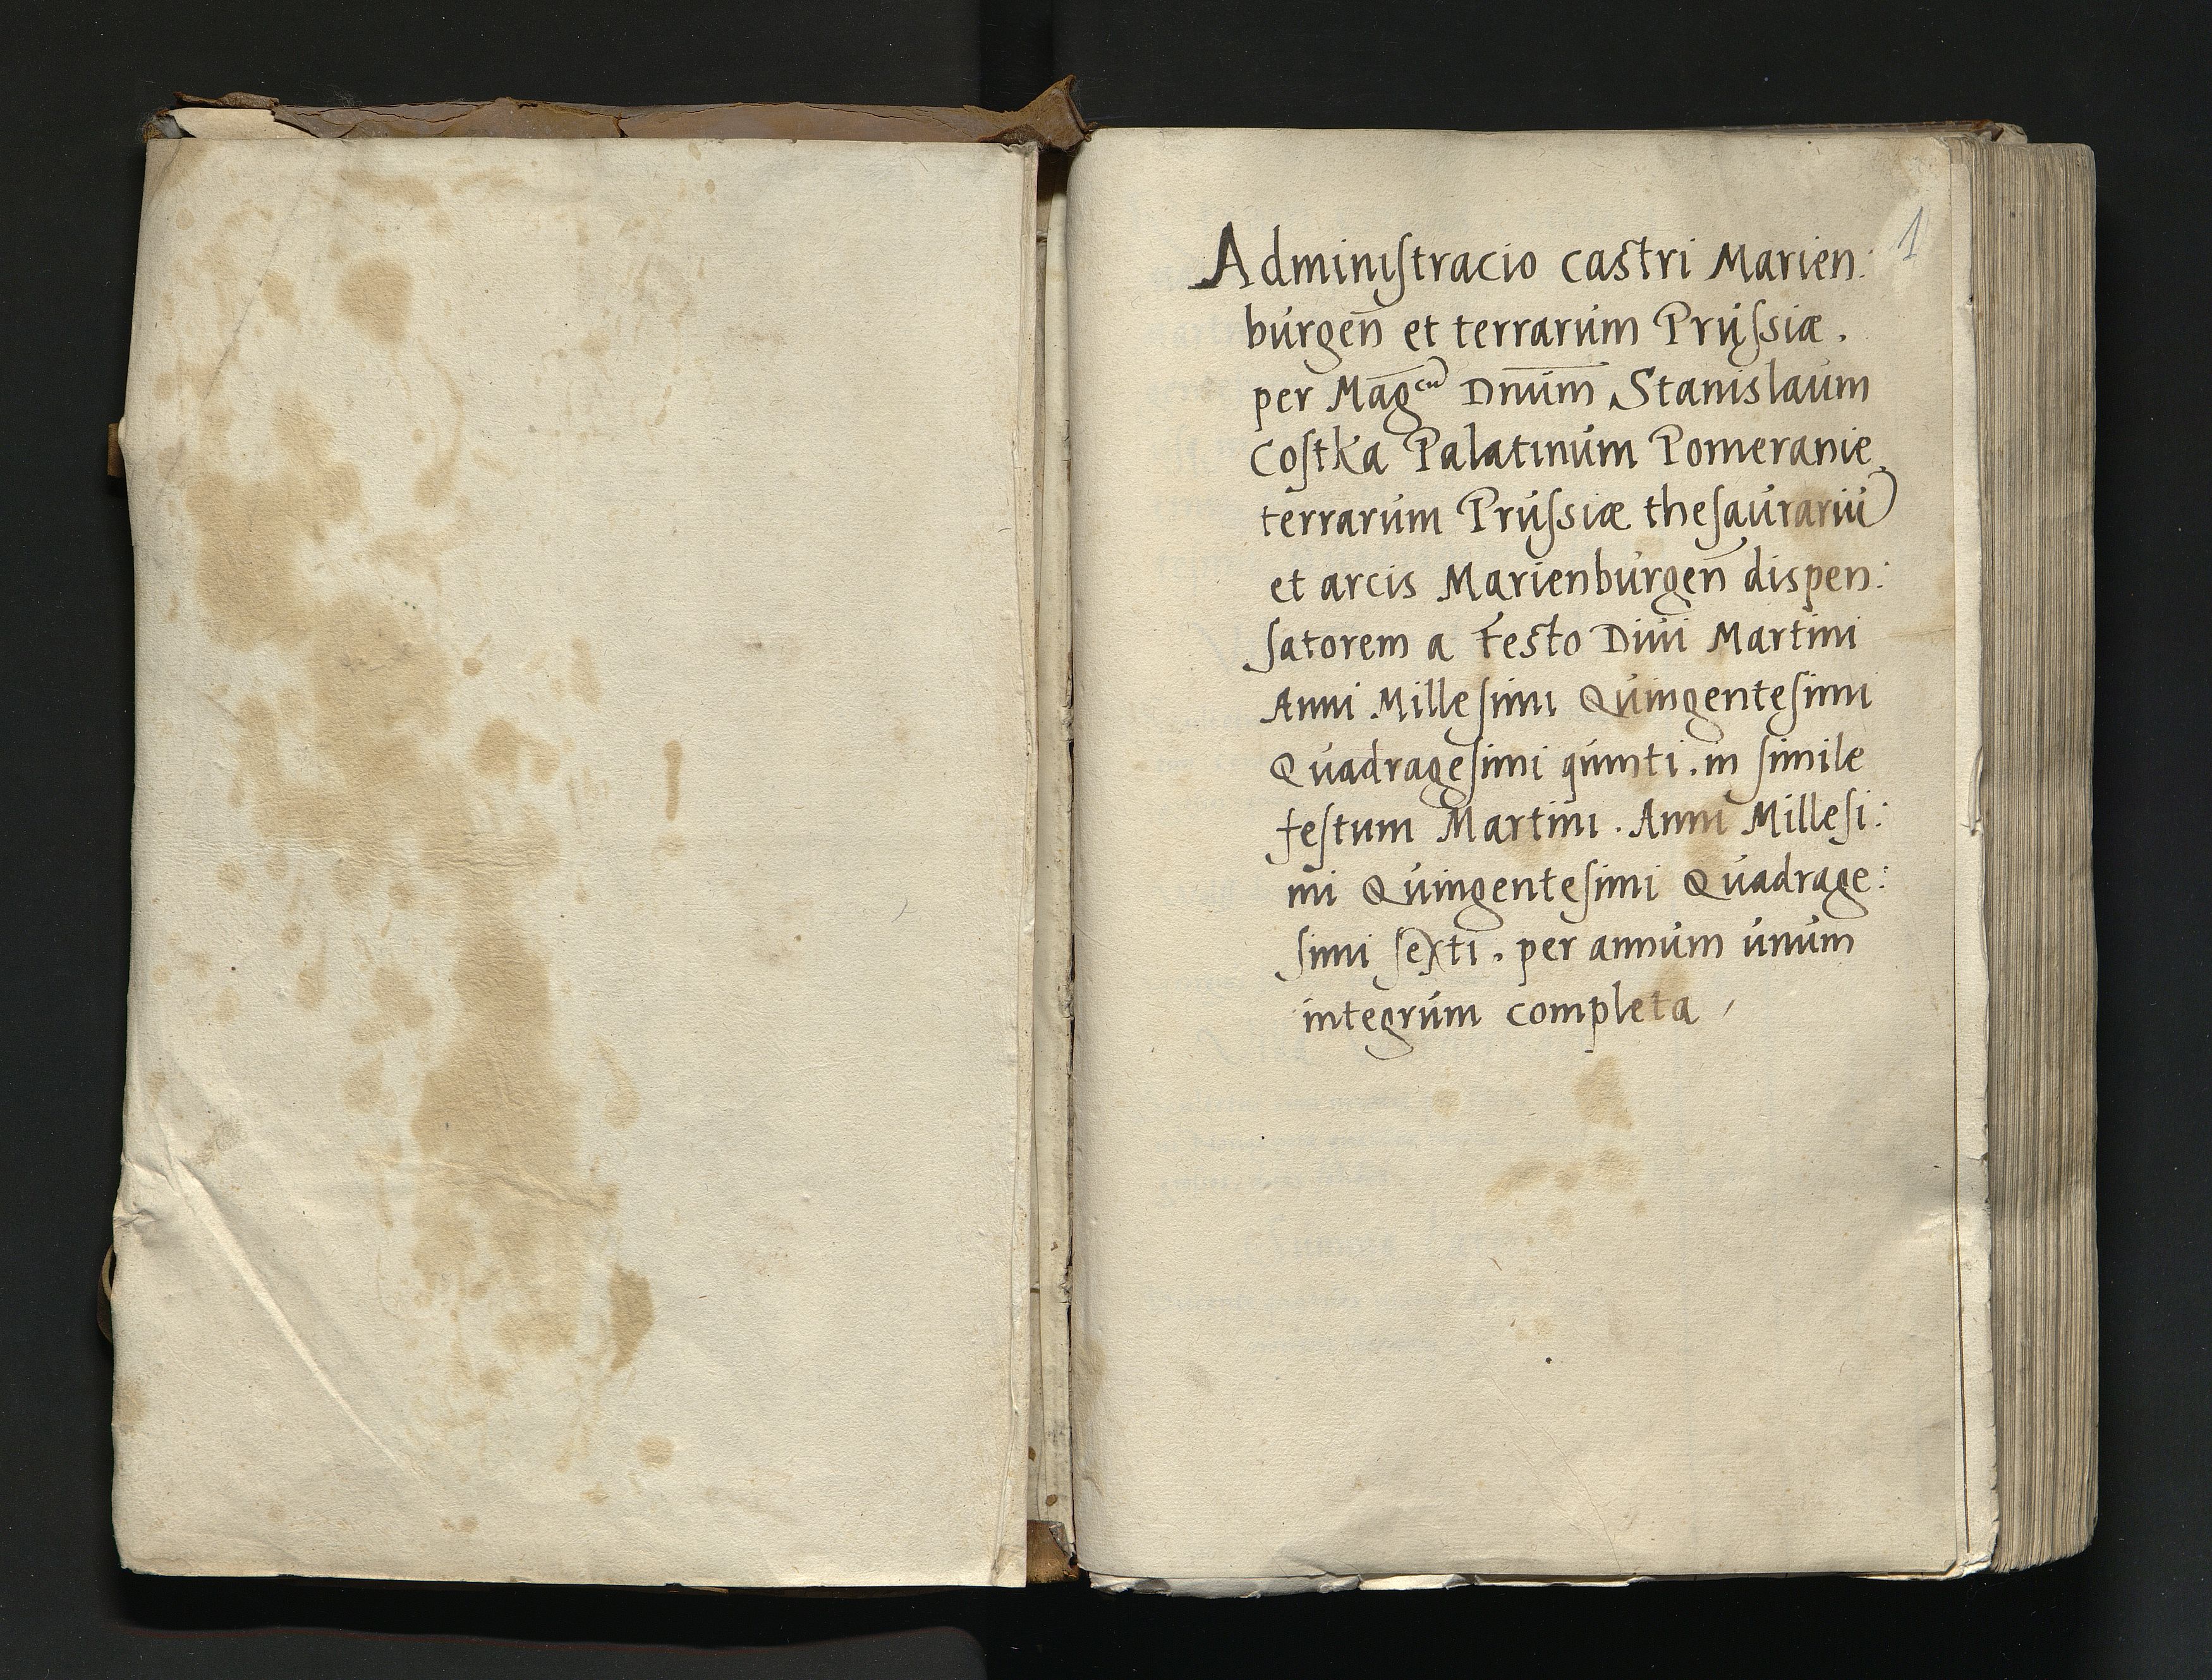 1
Adminiſtracio castri Marien:
búrgen̄ et terrarúm Prúſsiæ.
per Maḡcu Dnúm̄ Stanislaúm
Coſtka Palatinúm Pomeranie,
terrarúm Prúſsiæ theſaúrariú
et arcis Marienbúrgen̄ dispen:
ſatorem a feſto Diúi Martini
Anni Milleſimi Qúingenteſimi
Qúadrageſimi qúinti. in ſimile
feſtum Martini. Anni Milleſi:
mi Qúingenteſimi Qúadrage:
ſimi ſexti. per annúm únúm
integrúm completa